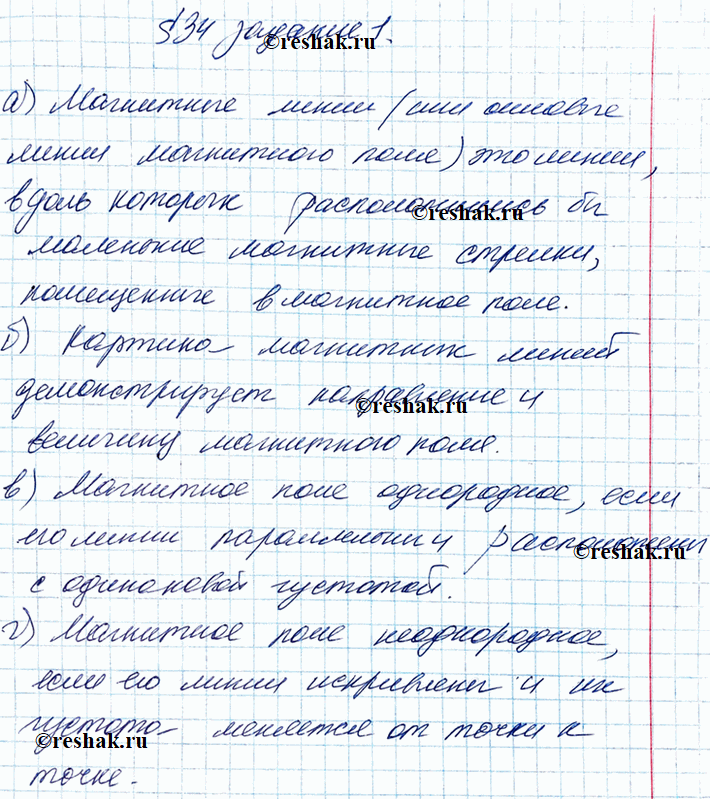 §34 задание 1.
©reshak.ru
а) Магнитные линии (или силовые
линии магнитного поля) это линии,
вдоль которых расположились бы
©reshak.ru
маленькие магнитные стрелки,
помещенные в магнитное поле.
б) Картина магнитных линий
демонстрирует направление и
©reshak.ru
величину магнитного поля.
в) Магнитное поле однородное, если
его линии параллельны и расположены
©reshak.ru
с одинаковой густотой.
г) Магнитное поле неоднородное,
если его линии искривлены и их
густота меняется от точки к
©reshak.ru
точке.